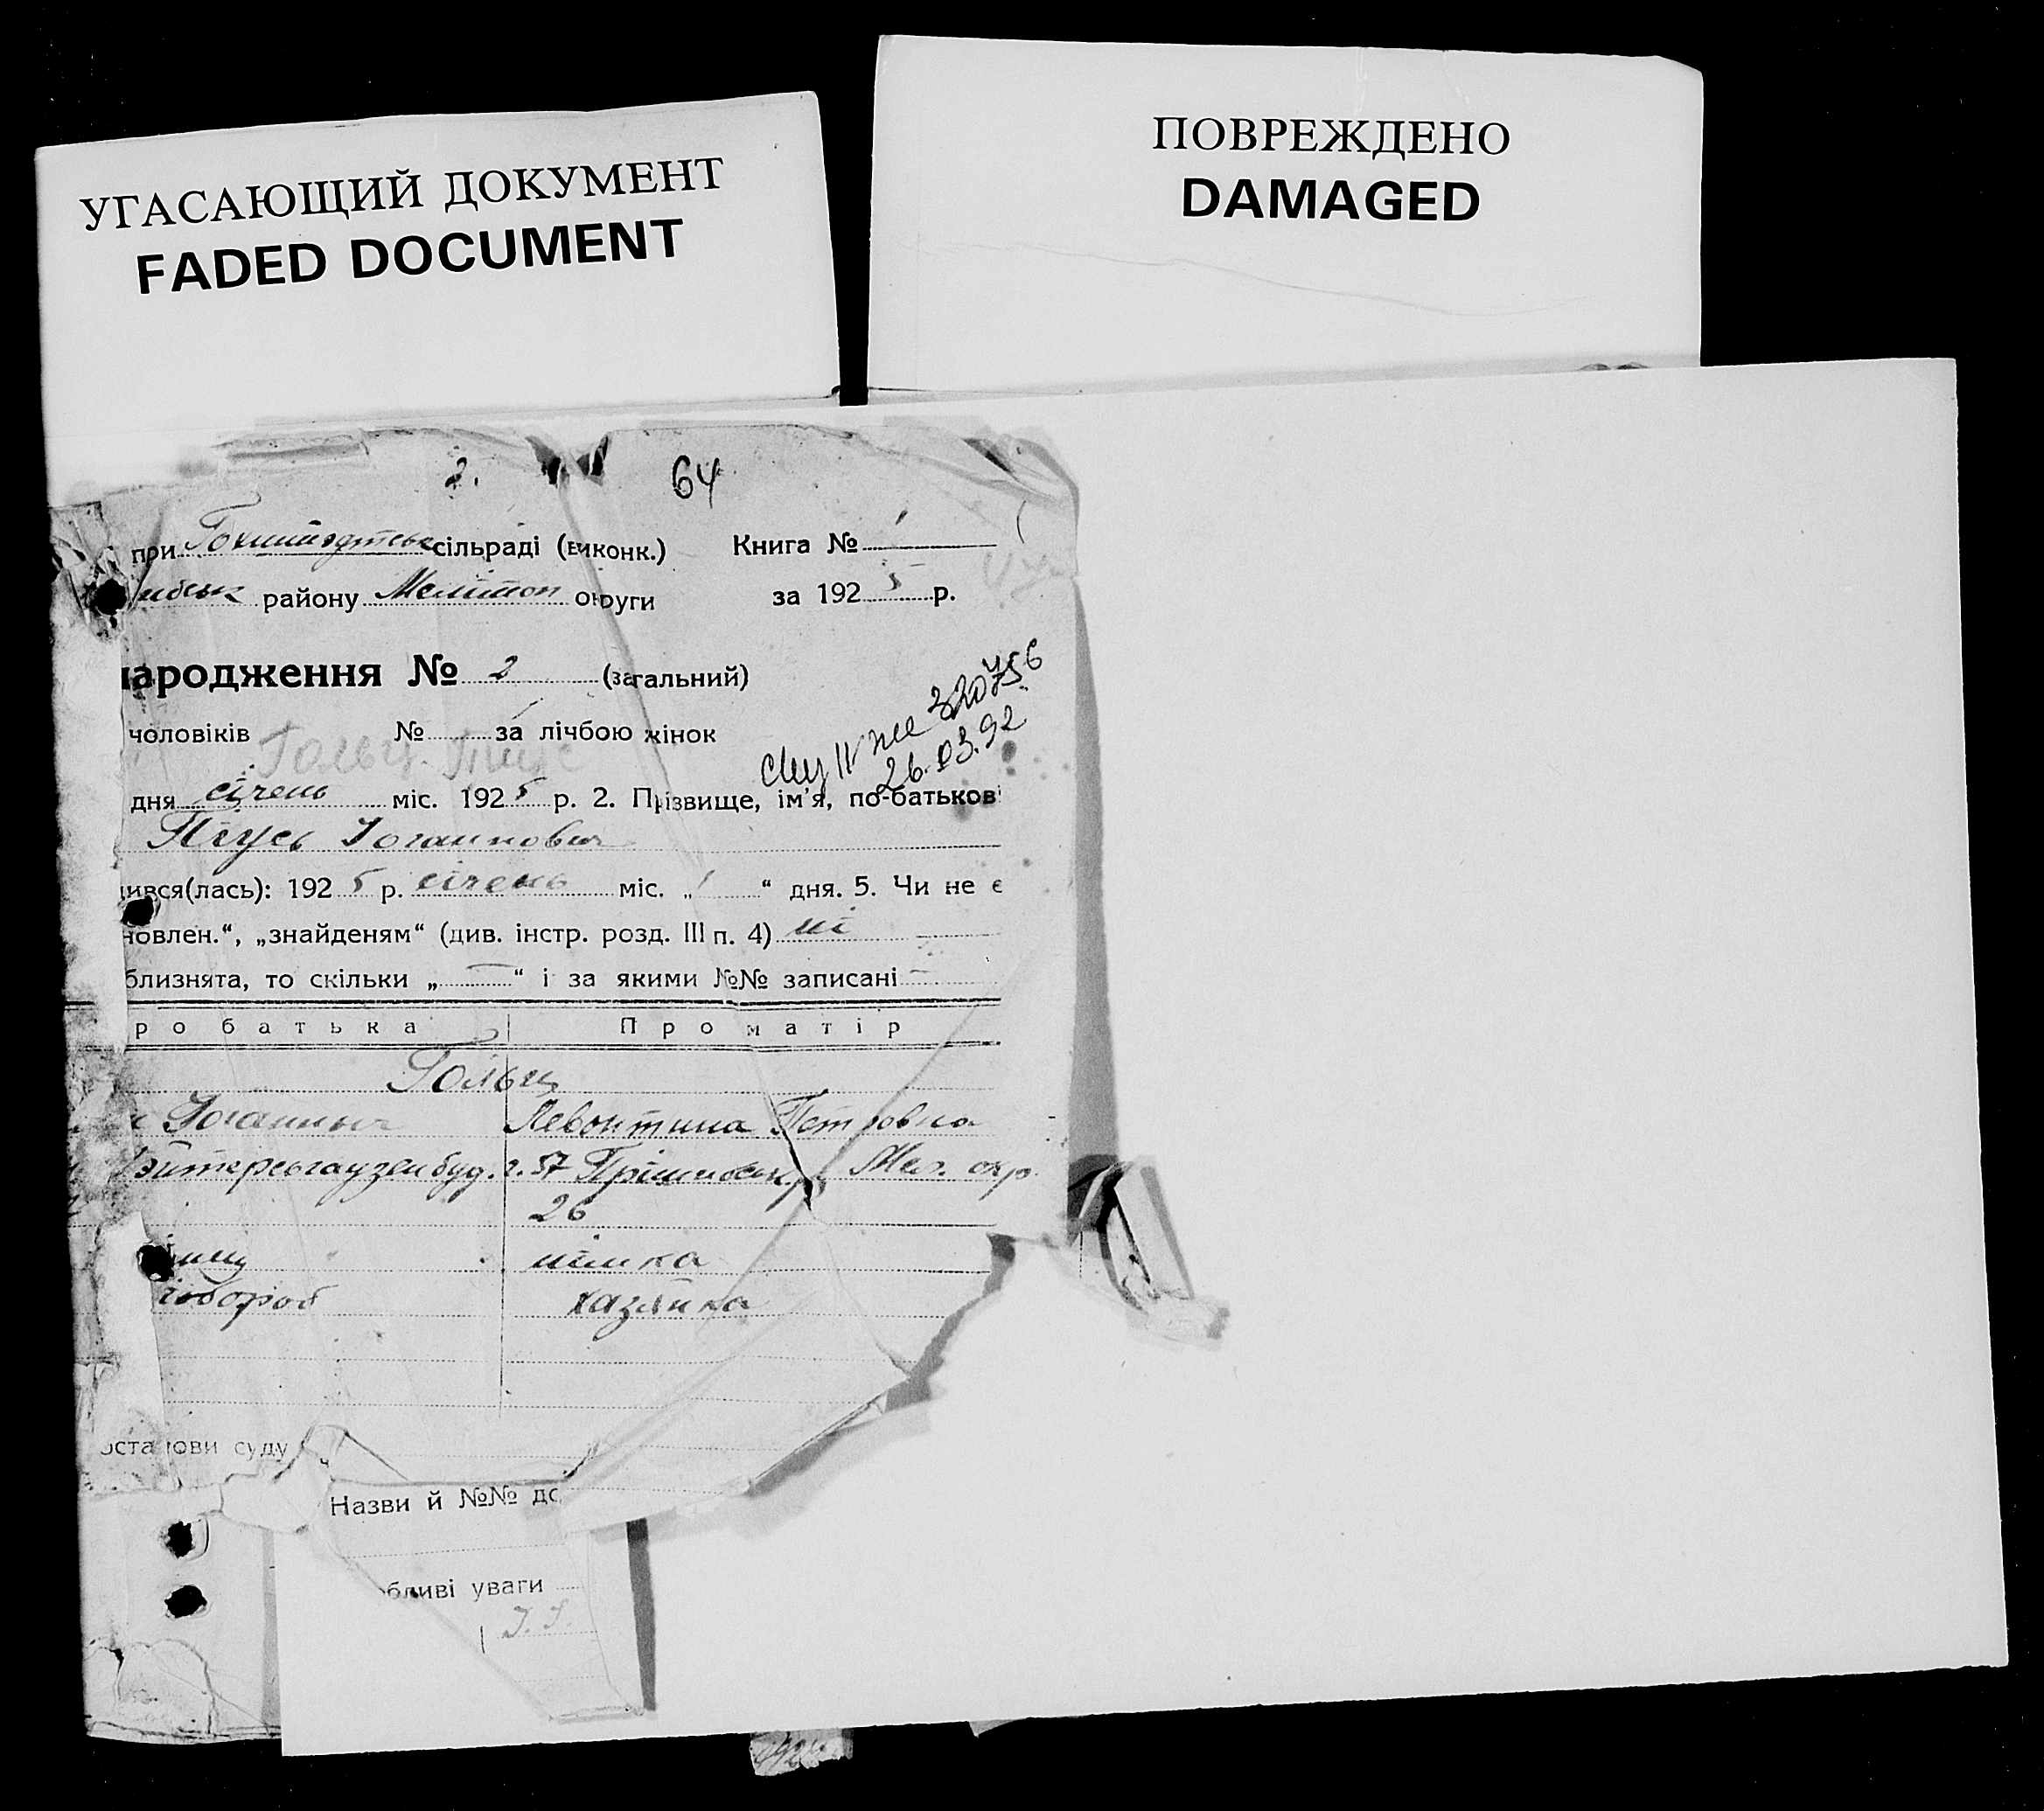 УГАСАЮЩИЙ ДОКУМЕНТ
FADED DOCUMENT
ПОВРЕЖДЕНО
DAMAGED
2. 64
при сільраді (виконк.) Книга № 1
району Мелітоп округи за 1925 р.
народження № 2 (загальний)
чоловіків № за лічбою жінок
Гольц Пиус
320756
26.03.92
дня січень міс. 1925 р. 2. Прізвище, ім'я, по-батькові
Піусь Иоганнович
ився(лась): 1925 р. січень міс. „1“ дня. 5. Чи не є
новлен.“, „знайденям“ (див. інстр. розд. III п. 4) ні
близнята, то скільки „—“ і за якими №№ записані —
ро батька Про матір
Гольц
Левонтина Петровна
буд. ч. 57 Пришибськ. Мел. окр.
26
німка
хлібороб хазяйка
останови суду
Назви й №№ до
обливі уваги